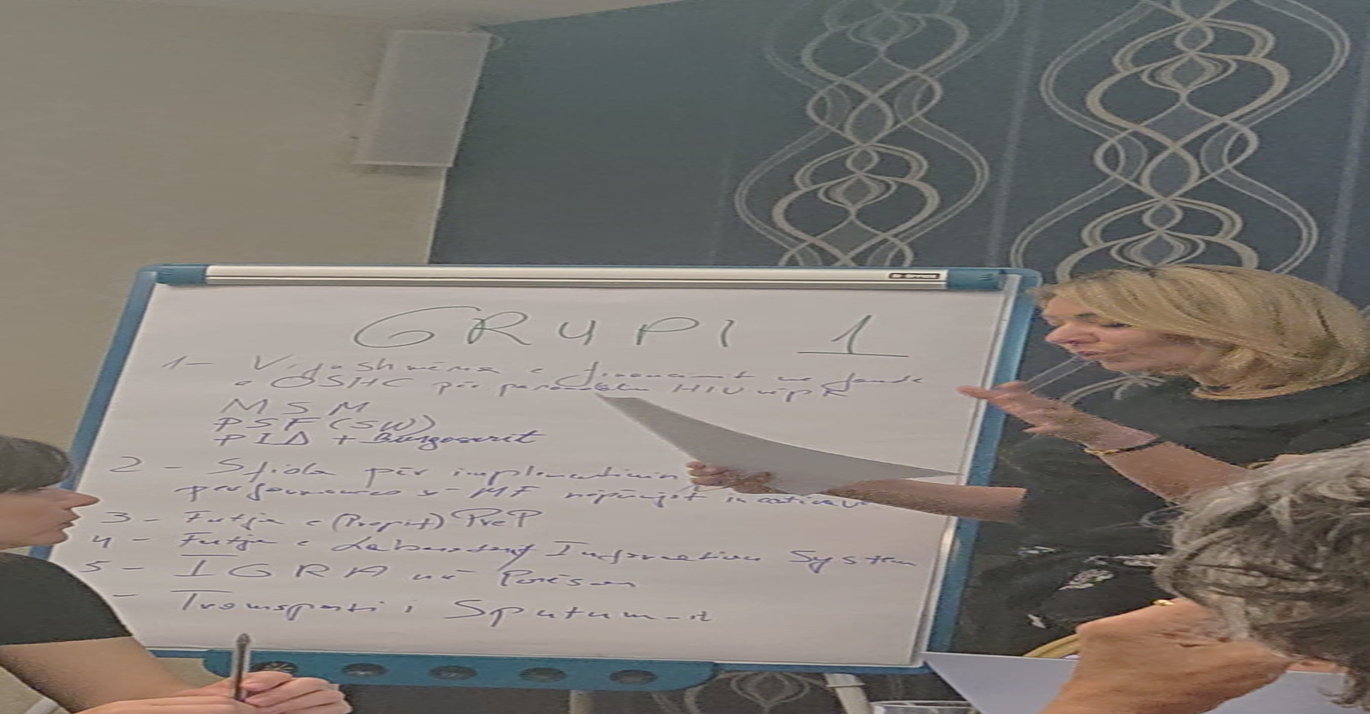 GRUPI 1
1- Vijashmëria e financimit me fonde
e OSHC për parandalim HIV
MSM
PSF (SW)
PID + Burgoserit
2 - Sfida për implementimin
performances MF
3 - Futja e (Prepit) PreP
4 - Futja e Laboratory Information System
5 - IGRA në
- Transporti i Sputum-it